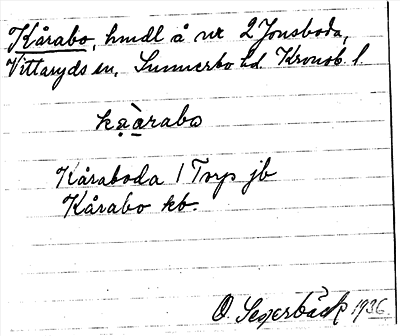 Kårabo, hmdl å nr 2 Jonsboda,
Vittaryds sn, Sunnerbo hd Kronob. l.
kạ̀ạ̀rabo
Kåraboda / Torp jb
Kårabo kb.
O. Segerbäck 1936.